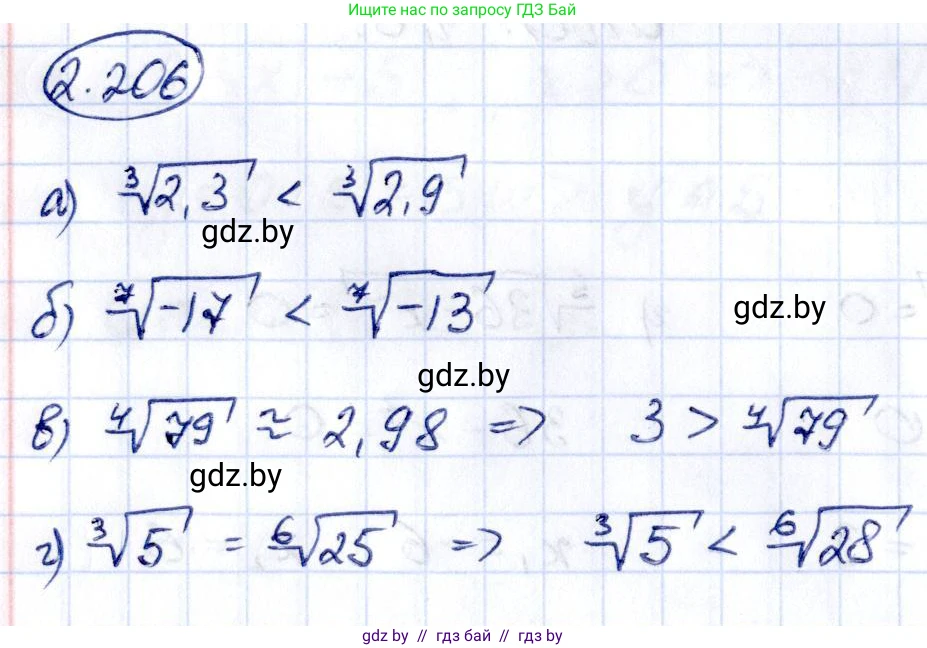 Ищите нас по запросу ГДЗ Бай
2.206
а) ∛2,3 < ∛2,9
gdz.by
б) ⁷√-17 < ⁷√-13
gdz.by
gdz.by
в) ⁴√79 ≈ 2,98 => 3 > ⁴√79
gdz.by
г) ∛5 = ⁶√25 => ∛5 < ⁶√28
gdz by // гдз бай // gdz by